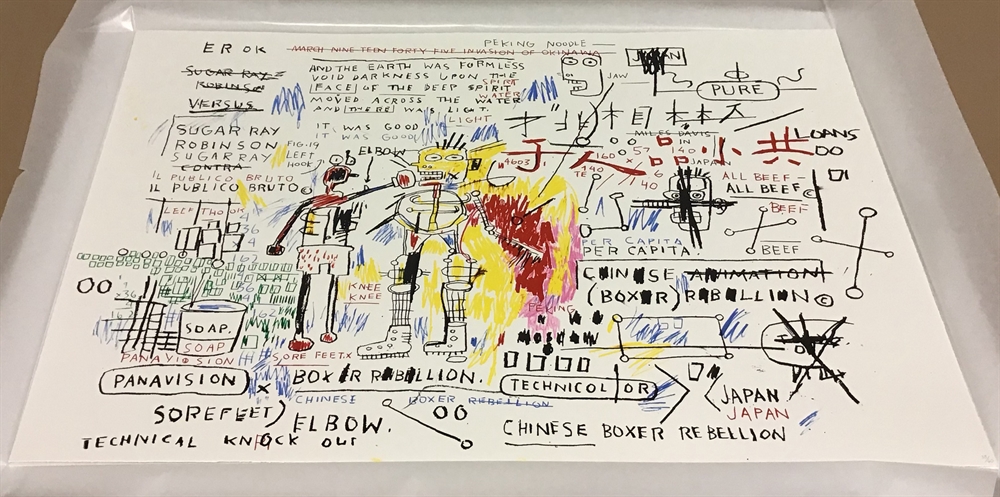 EROK
PEKING NOODLE
MARCH NINETEEN FORTY FIVE INVASION OF OKINAWA
SUGAR RAY
ROBINSON
VERSUS
AND THE EARTH WAS FORMLESS
VOID DARKNESS UPON THE
FACE OF THE DEEP SPIRIT
MOVED ACROSS THE WATER
AND THERE WAS LIGHT.
SPIRIT
WATER
LIGHT
IT WAS GOOD
WAS GOOD
JAW
JAPAN
PURE
SUGAR RAY
ROBINSON
SUGAR RAY
CONTRA
IL PUBLICO BRUTO
IL PUBLICO BRUTO
FIG. 19
LEFT
HOOK
ELBOW
木目
MILES DAVIS
IN
JAPAN
于人品小共
LOANS
OO
4603
160
57
140
140
40
ALL BEEF
ALL BEEF ©
BEEF
BEEF
PER CAPITA
PER CAPITA.
CHINESE ANIMATION
(BOXER) REBELLION ©
LECK THO
36
4
162
36
OO
KNEE
KNEE
PEKING
MOSCOW
SOAP.
SOAP
PANAVISION
SORE FEET.X
PANAVISION X
BOXER REBELLION.
CHINESE BOXER REBELLION
TECHNICOLOR
JAPAN
JAPAN
SOREFEET)
ELBOW.
OO
TECHNICAL KNOCK OUT
CHINESE BOXER REBELLION